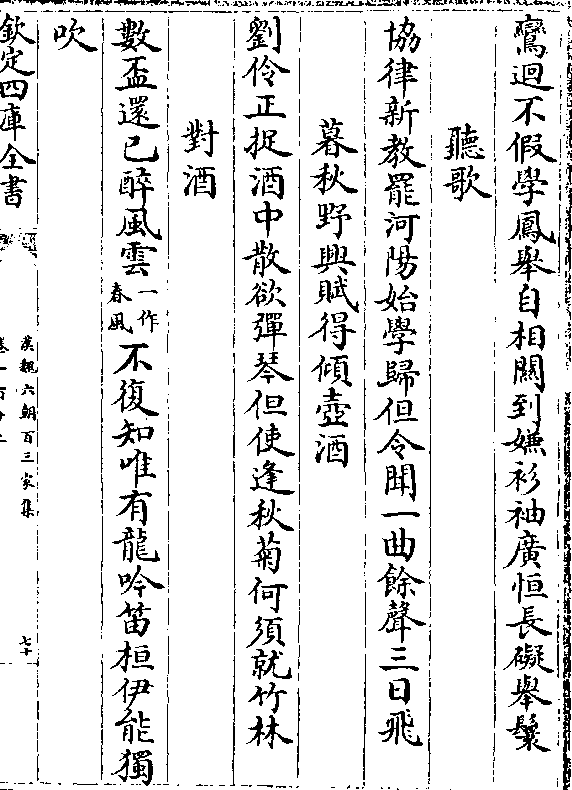 鸞迴不假學鳳舉自相關到嫌衫袖廣恒長礙舉鬟
聽歌
協律新教罷河陽始學歸但令聞一曲餘聲三日飛
暮秋野興賦得傾壺酒
劉伶正捉酒中散欲彈琴但使逢秋菊何須就竹林
對酒
數盃還已醉風雲一作春風不復知唯有龍吟笛桓伊能獨
吹
欽定四庫全書
漢魏六朝百三家集
七十